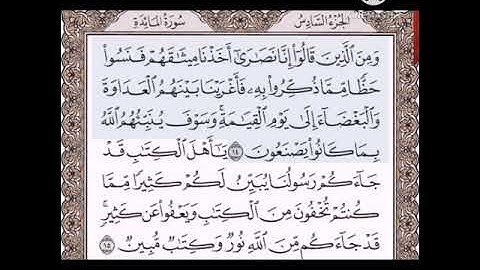 الجزء السادس
سورة المائدة
وَمِنَ ٱلَّذِينَ قَالُوٓا۟ إِنَّا نَصَٰرَىٰٓ أَخَذْنَا مِيثَٰقَهُمْ فَنَسُوا۟
حَظًّا مِّمَّا ذُكِّرُوا۟ بِهِۦ فَأَغْرَيْنَا بَيْنَهُمُ ٱلْعَدَاوَةَ
وَٱلْبَغْضَآءَ إِلَىٰ يَوْمِ ٱلْقِيَٰمَةِ ۚ وَسَوْفَ يُنَبِّئُهُمُ ٱللَّهُ
بِمَا كَانُوا۟ يَصْنَعُونَ ١٤ يَٰٓأَهْلَ ٱلْكِتَٰبِ قَدْ
جَآءَكُمْ رَسُولُنَا يُبَيِّنُ لَكُمْ كَثِيرًا مِّمَّا
كُنتُمْ تُخْفُونَ مِنَ ٱلْكِتَٰبِ وَيَعْفُوا۟ عَن كَثِيرٍ ۚ
قَدْ جَآءَكُم مِّنَ ٱللَّهِ نُورٌ وَكِتَٰبٌ مُّبِينٌ ١٥